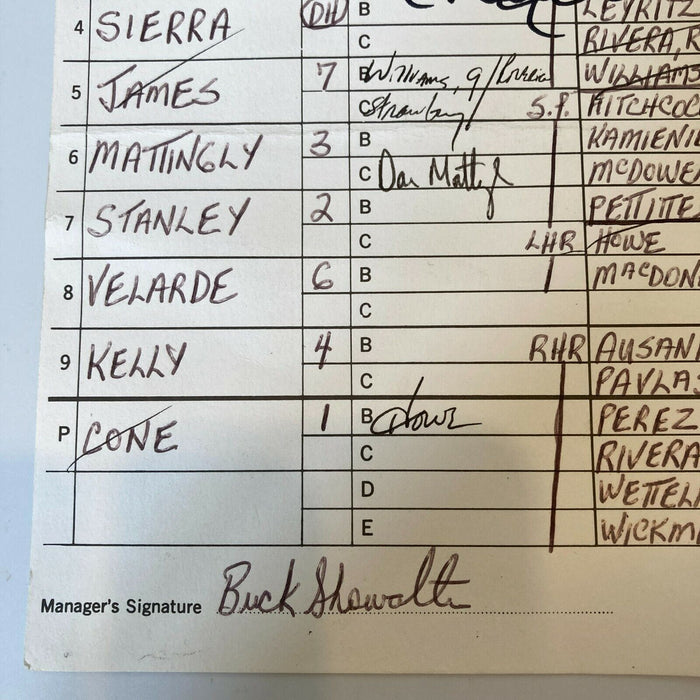 4 SIERRA DH B LEYRITZ
C RIVERA, R
5 JAMES 7 B Williams, 9/Rivera WILLIAMS
C Strawberry S.P. HITCHCO
6 MATTINGLY 3 B KAMIENI
C Don Mattingly McDOWE
7 STANLEY 2 B PETTITE
C LHR HOWE
8 VELARDE 6 B MACDON
C
9 KELLY 4 B RHR AUSAN
C PAVLAS
P CONE 1 B Howe PEREZ
C RIVERA
D WETTEL
E WICKM
Manager's Signature Buck Showalter